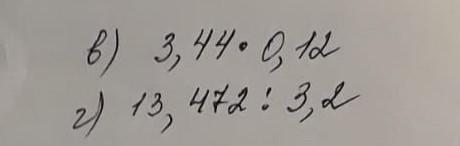 в) 3,44 · 0,12
г) 13,472 : 3,2